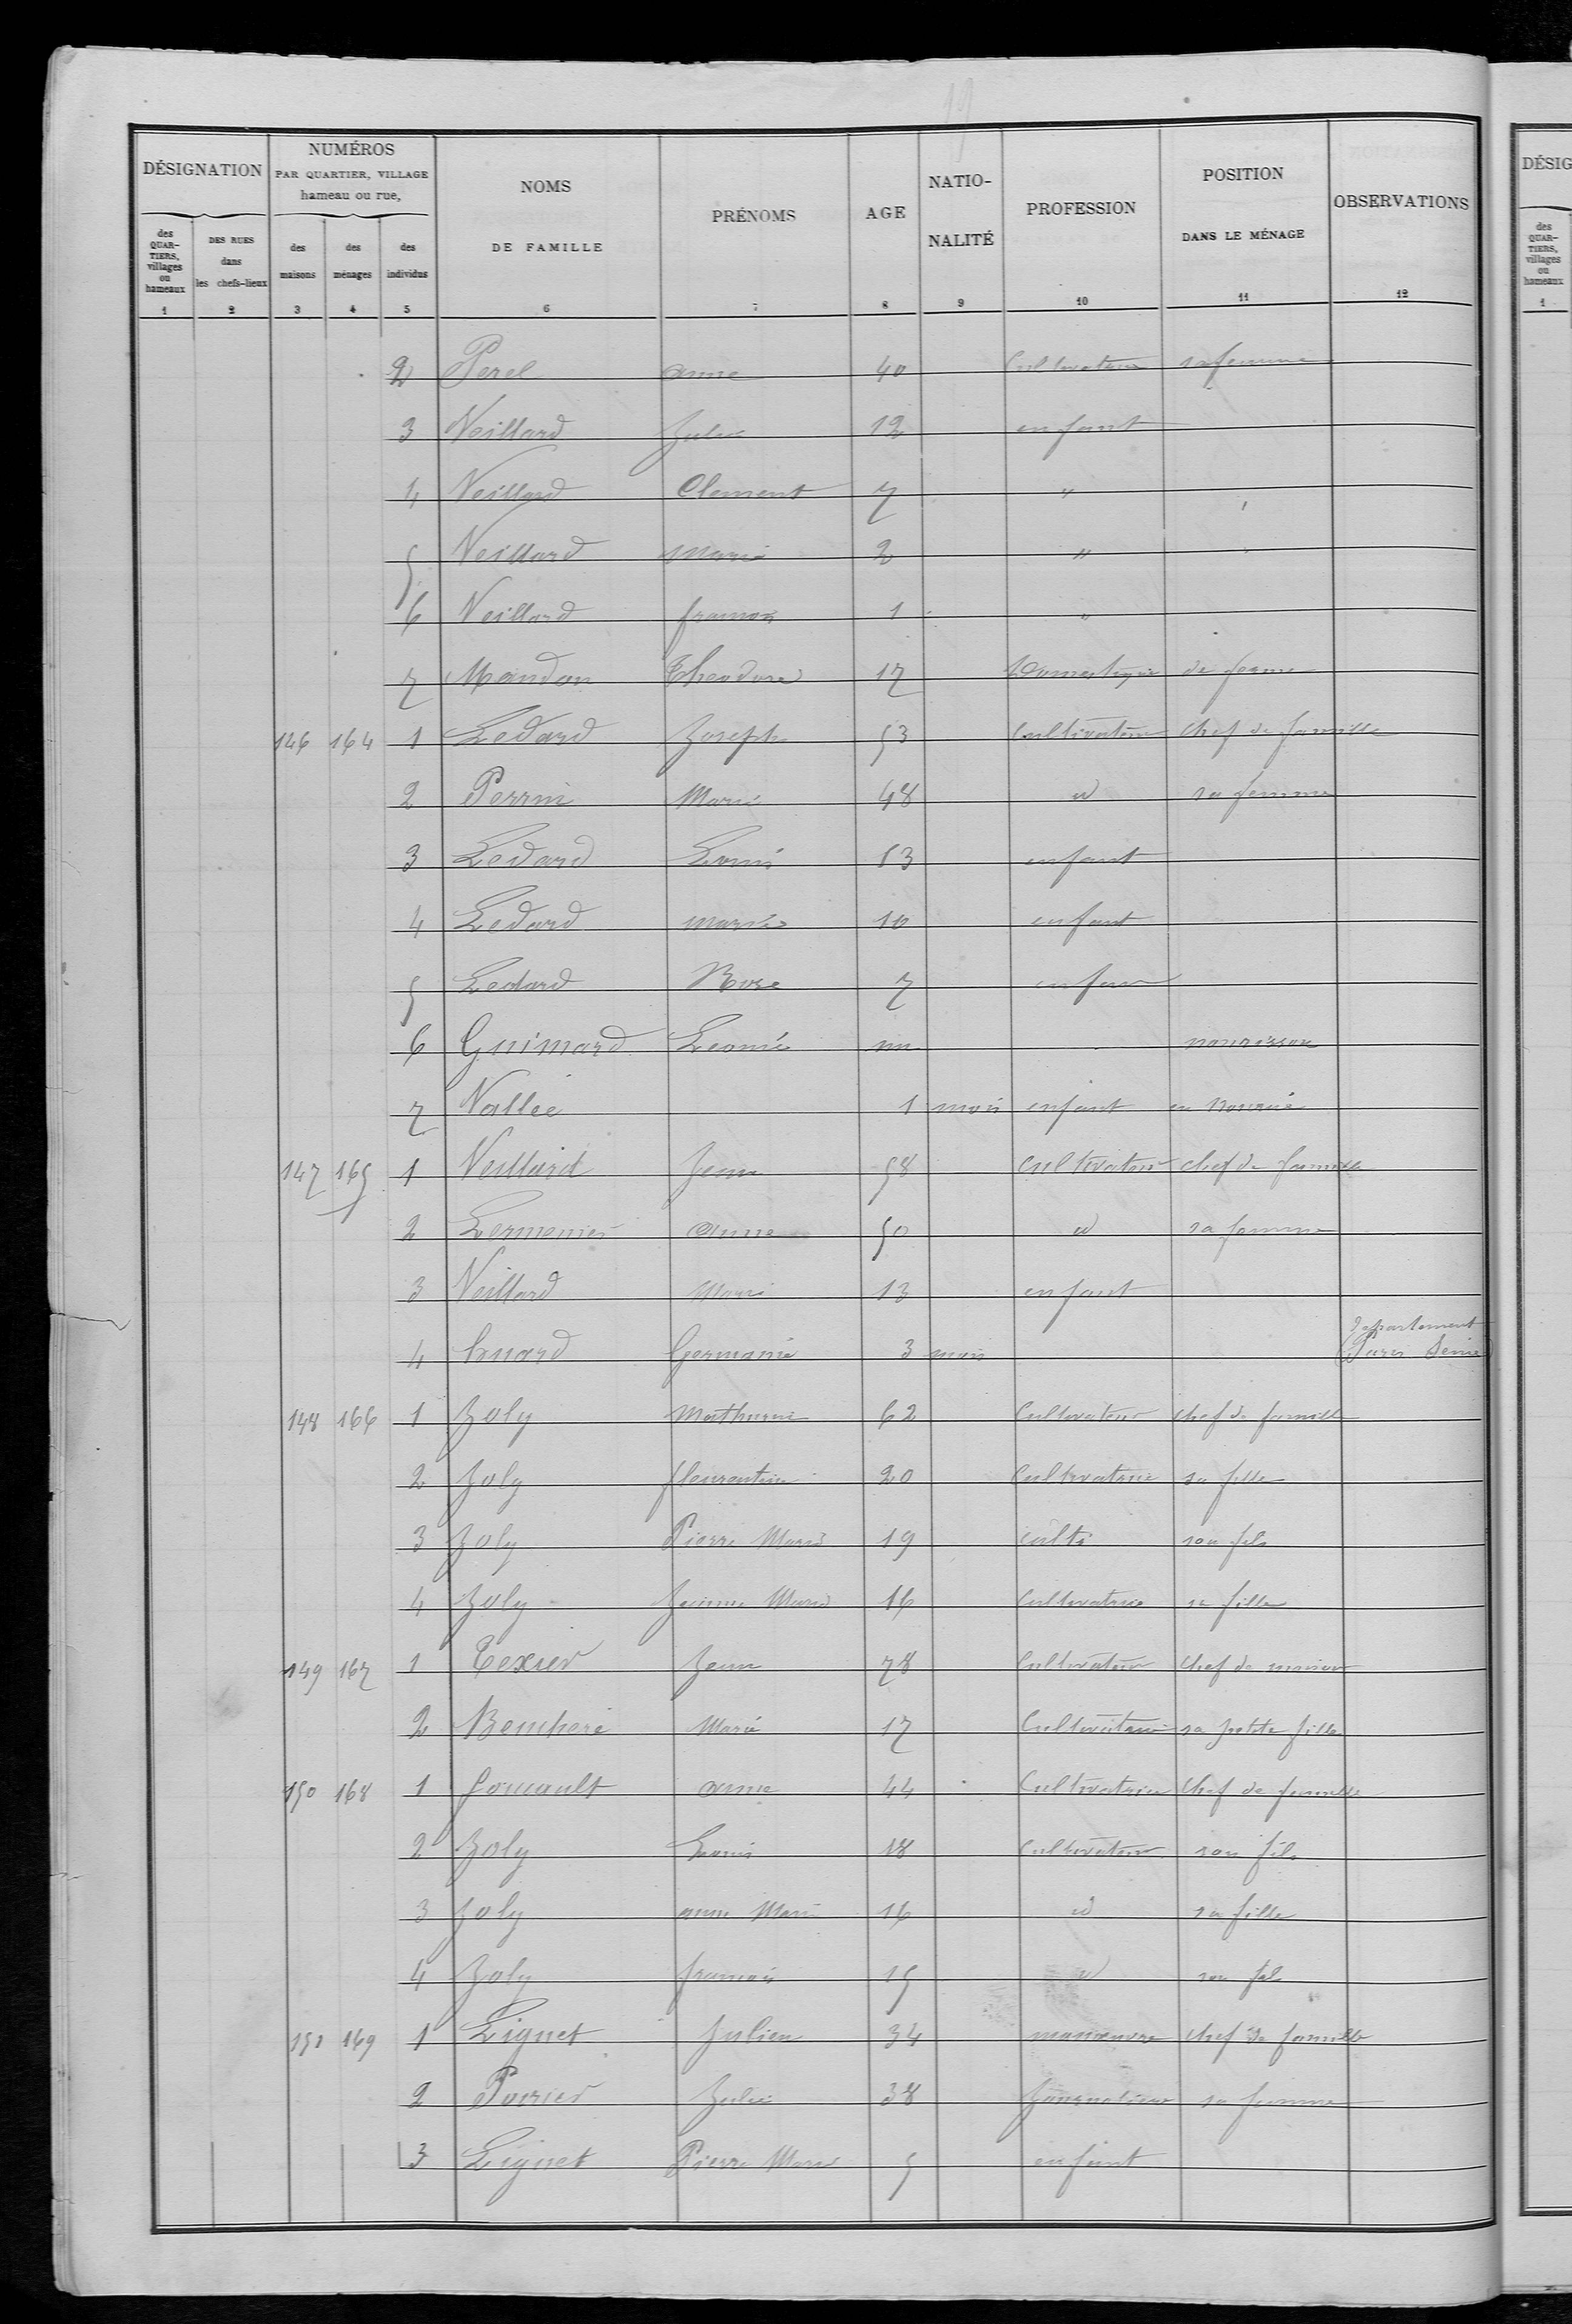 19
DÉSIGNATION
NUMÉROS
PAR QUARTIER, VILLAGE
hameau ou rue,
NOMS
DE FAMILLE
PRÉNOMS
AGE
NATIO-
NALITÉ
PROFESSION
POSITION
DANS LE MÉNAGE
OBSERVATIONS
des
QUAR-
TIERS,
villages
ou
hameaux
DES RUES
dans
les chefs-lieux
des
maisons
des
ménages
des
individus
1 2 3 4 5 6 7 8 9 10 11 12
2 Perel anne 40 Cultivatrice sa femme
3 Veillard Jules 12 enfant
4 Veillard Clement 7 "
5 Veillard Marie 2 " "
6 Veillard francois 1 "
7 Mandon Theodore 17 Domestique de ferme
146 164 1 Ledard Joseph 53 Cultivateur chef de famille
2 Perrin Marie 48 id sa femme
3 Ledard Louis 13 enfant
4 Ledard marie 10 enfant
5 Ledard Rose 7 enfant
6 Guimard Leonie un nourisson
7 Vallée 1 mois enfant en nourrice
147 165 1 Veillard Jean 58 Cultivateur chef de famille
2 anne 50 id sa femme
3 Veillard Marie 13 enfant
4 Germaine 3 mois departement
Paris Seine
148 166 1 Joly Mathurin 62 Cultivateur chef de famille
2 Joly florentine 20 Cultivatrice sa fille
3 Joly Pierre Marie 19 culti son fils
4 Joly Jeanne Marie 16 Cultivatrice sa fille
149 167 1 Texier Jean 78 Cultivateur Chef de maison
2 Marie 17 Cultivatrice sa petite fille
150 168 1 anne 44 Cultivatrice Chef de famille
2 Joly Louis 18 Cultivateur son fils
3 Joly anne Marie 16 id sa fille
4 Joly francois 15 id son fils
151 169 1 Liguet Julien 34 manœuvre chef de famille
2 Poirier Julie 38 Journaliere sa femme
3 Liguet Pierre Marie 5 enfant